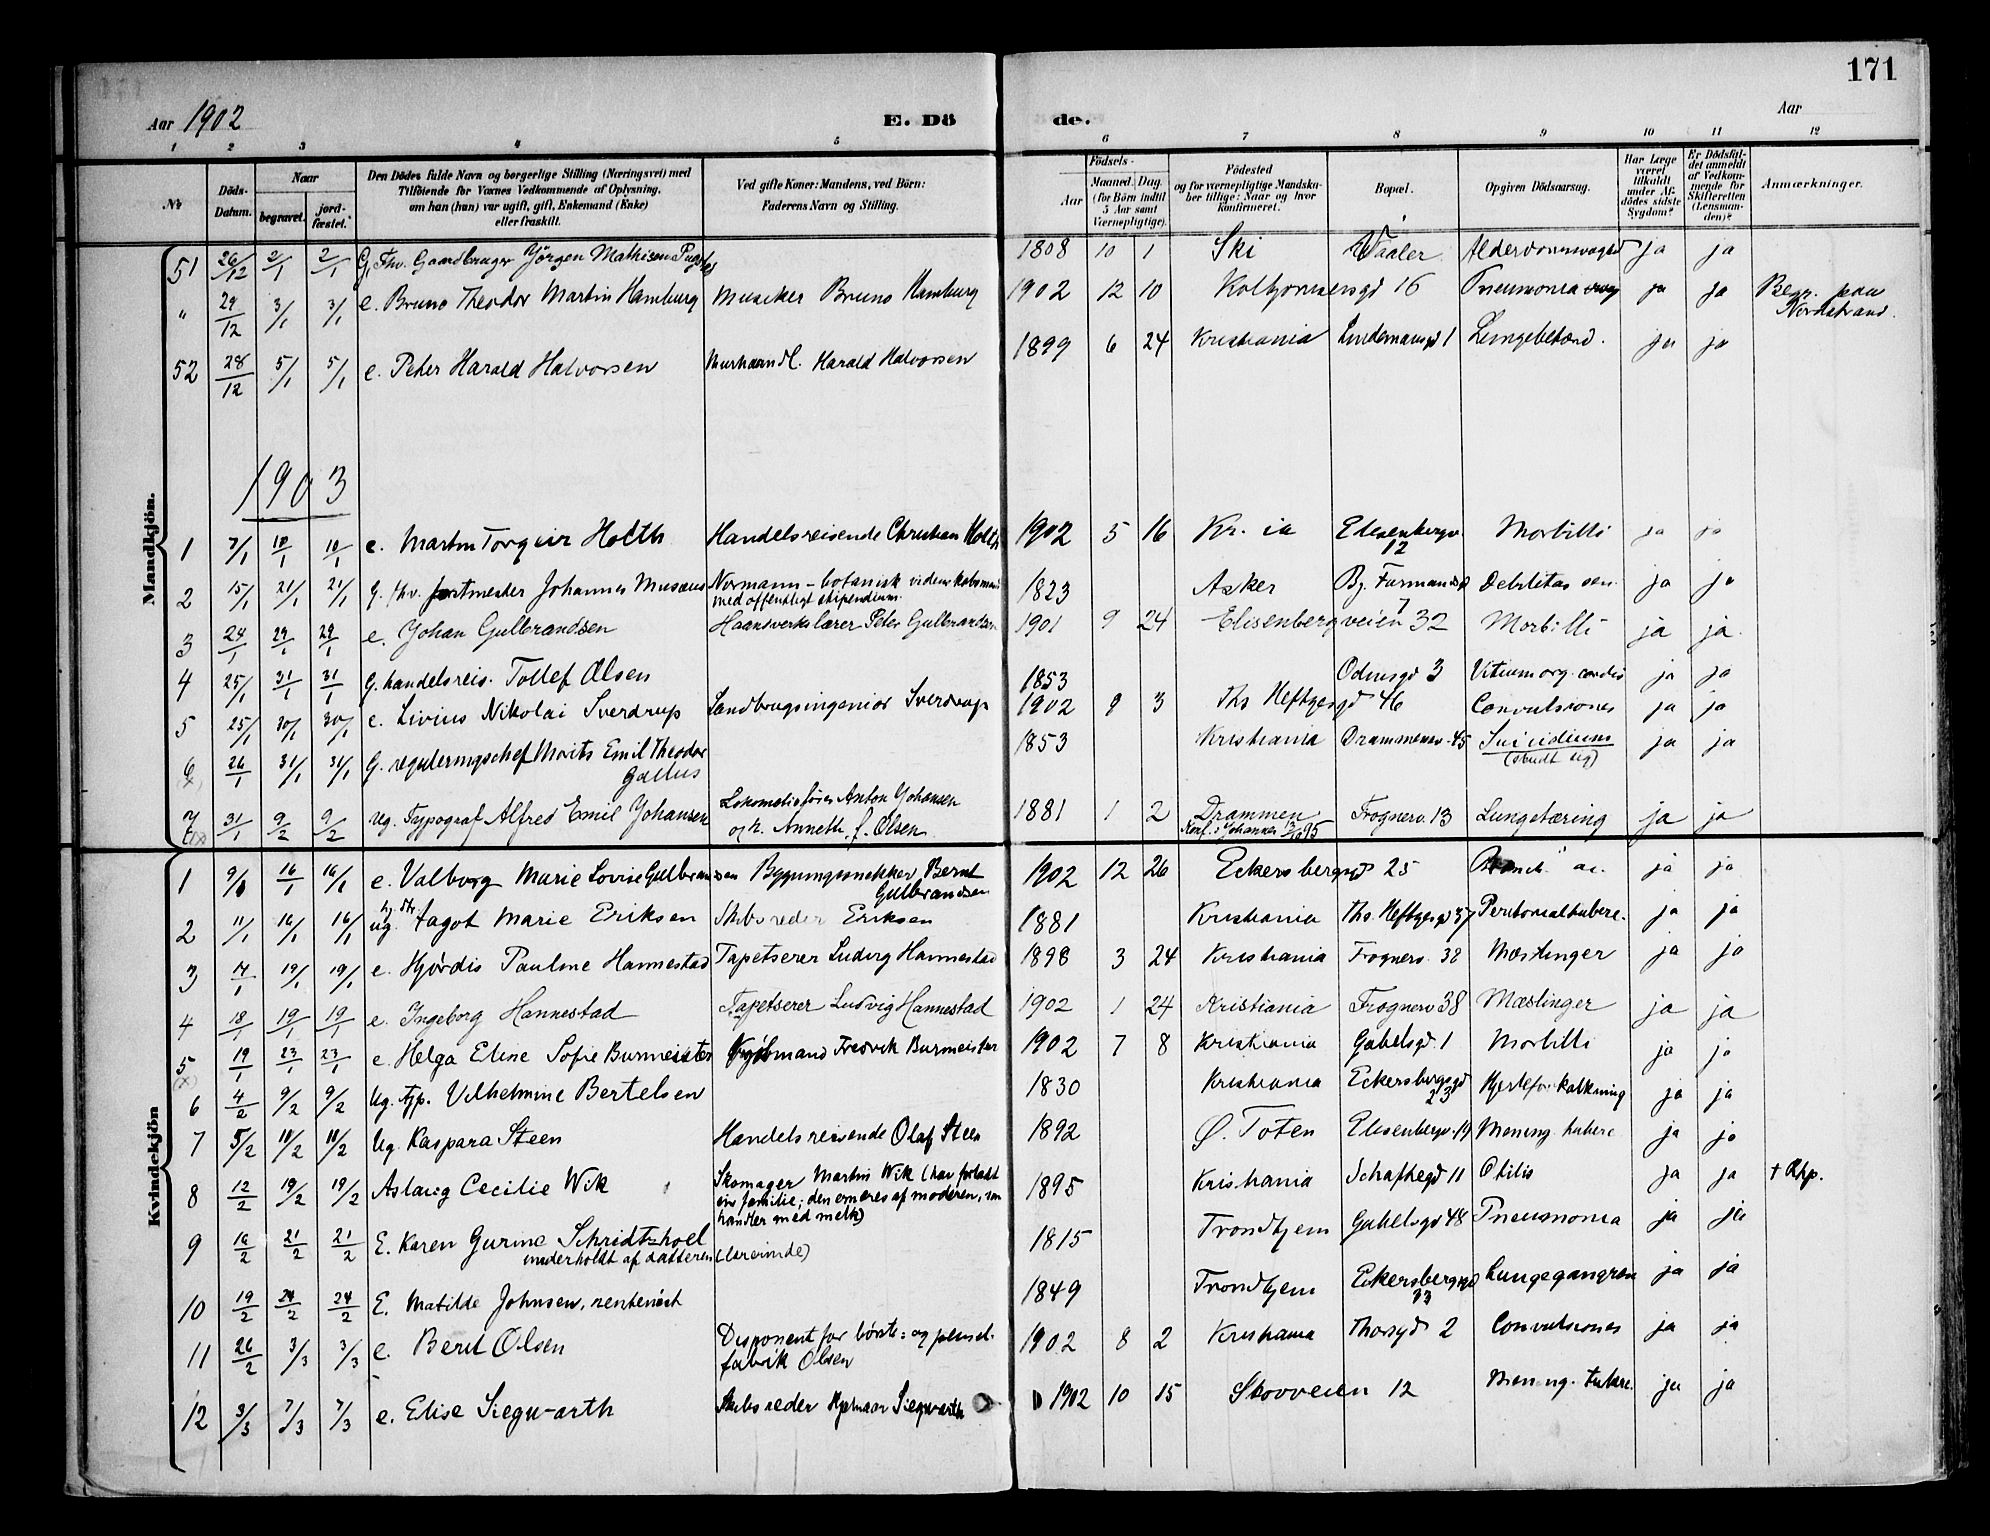 171
Aar 1902
E. Dö
de.
Aar
1 2 3 4 5 6 7 8 9 10 11 12
No
Döds-Datum.
Naar
begravet.
jord-fæstet.
Den Dödes fulde Navn og borgerlige Stilling (Næringsvei) med
Tilföiende for Voxnes Vedkommende af Oplysning,
om han (hun) var ugift, gift, Enkemand (Enke)
eller fraskilt.
Ved gifte Koner: Mandens, ved Börn:
Faderens Navn og Stilling.
Födsels-
Aar
Maaned. Dag.
(for Börn indtil
5 Aar samt
Værnepligtige).
Födested
og for værnepligtige Mandska-
ber tillige: Naar og hvor
Konfirmeret.
Bopæl.
Opgiven Dödsaarsag.
Har Læge
været
tilkaldt
under Af-
dödes sidste
Sygdom?
Er Dödsfal-
det anmeldt
af Vedkom-
mende for
Skifteretten
(Lensman-
den)?
Anmærkninger.
Mandkjön.
51 26/12 2/1 2/1 G. Fhv. Gaardbruger Jörgen Mathisen 1808 10 1 Ski Vaaler ja ja
" 29/12 3/1 3/1 e. Bruno Theodor Martin Hamburg Musiker Bruno Hamburg 1902 12 10 Kolbjørnsensgd 16 Pneumonia ja ja Begr. paa
Nordstrand.
52 28/12 5/1 5/1 e. Peter Harald Halvorsen Murhaandl. Harald Halvorsen 1899 6 24 Kristiania Lindemansgd 1 Lungebetænd. ja ja
1903
1 7/1 10/1 10/1 e. Martin Torgeir Holth Handelsreisende Christian Holth 1902 5 16 Kr.ia Elisenbergv. 12 Morbilli ja ja
2 15/1 21/1 21/1 G. fhv. forstmester Johannes Musæus Normann - botanisk videnskabsmand
med offentligt stipendium. 1823 Asker By. Furmandsgd 7 Debilitas sen. ja ja
3 24/1 29/1 29/1 e. Johan Gulbrandsen Haandverkslærer Peter Gulbrandsen 1901 9 24 Elisenbergveien 32 Morbilli ja ja.
4 25/1 31/1 31/1 G. handelsreis. Tollef Olsen 1853 Odinsgd 3 Vitium org. cordis ja ja
5 25/1 30/1 30/1 e. Livius Nikolai Sverdrup Landbrugsingeniør Sverdrup 1902 9 3 Ths Heftyesgd 46 Convulsiones ja ja
6 26/1 31/1 31/1 G. reguleringschef Morits Emil Theodor
Gallus 1853 Kristiania Drammensv. 45 Suicidium
(skudt sig) ja ja
7 31/1 9/2 9/2 ug. Typograf Alfred Emil Johansen Lokomotivfører Anton Johansen
og h. Anneth. f. Olsen. 1881 1 2 Drammen
Konf. i Johannes 13/10 95 Frognerv. 13 Lungetæring ja ja
Kvindekjön
1 9/1 16/1 16/1 e. Valborg Marie Lovise Gulbrandsen Bygningssnekker Bernt
Gulbrandsen 1902 12 26 Eckersbergsgd 25 Bronch. ac. ja ja
2 11/1 16/1 16/1 ug. Fagot Marie Eriksen Skibsreder Eriksen 1881 Kristiania Ths. Heftyesgd 37 Peritonealtuberc. ja ja
3 17/1 19/1 19/1 e. Hjørdis Pauline Hannestad Tapetserer Ludvig Hannestad 1898 3 24 Kristiania Frognerv. 38 Mæslinger ja ja
4 18/1 19/1 19/1 e. Ingeborg Hannestad Tapetserer Ludvig Hannestad 1902 1 24 Kristiania Frognerv 38 Mæslinger ja ja
5 19/1 23/1 23/1 e Helga Eline Sofie Burmeister Kjøbmand Fredrik Burmeister 1902 7 8 Kristiania Gabelsgd. 1 Morbilli ja ja
6 4/2 9/2 9/2 Ug. tjp. Vilhelmine Bertelsen 1830 Kristiania Eckersbergsgd 23 Hjerteforkalkning ja ja
7 5/2 10/2 10/2 Ug Kaspara Steen Handelsreisende Olaf Steen 1892 Ø. Toten Elisenbergv. 19 Mening. tuberc ja ja
8 12/2 19/2 19/2 Aslaug Cecilie Wik Skomager Martin Wik (har forladt
sin familie; den ernæres af moderen, som
handler med melk) 1895 Kristiania Schaftegd 11 Otitis ja ja + Rhp.
9 16/2 21/2 21/2 E. Karen Gurine Schridtshoel
underholdt af datteren (lærerinde) 1815 Trondhjem Gabelsgd 48 Pneumonia ja ja
10 19/2 24/2 24/2 E. Matilde Johnsen, rentenist 1849 Trondhjem Eckersbergsgd 33 Lungegangræn ja ja
11 26/2 3/3 3/3 e. Berit Olsen Disponent for børste- og pensel-
fabrik Olsen 1902 8 2 Kristiania Thorsgd 2 Convulsiones ja ja
12 3/3 7/3 7/3 e. Elise Siegwarth Skibsreder Hjalmar Siegwarth 1902 10 15 Skovveien 12 Mening. tuberc. ja ja